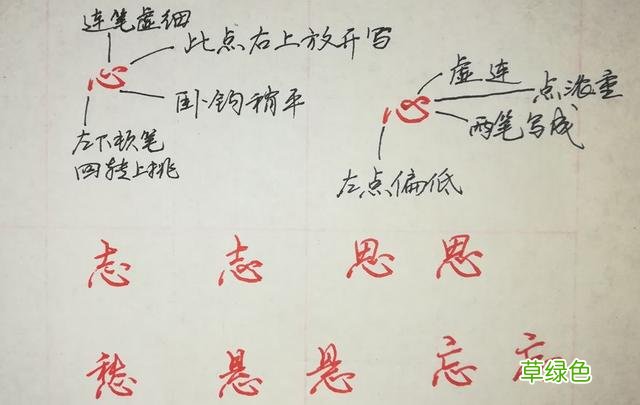 连笔虚细
此点右上放开写
心
卧钩稍平
左下顿笔
回转上挑
虚连
点浓重
心
两笔写成
左点偏低
志 志 思 思
悬 悬 忘 忘
草绿色